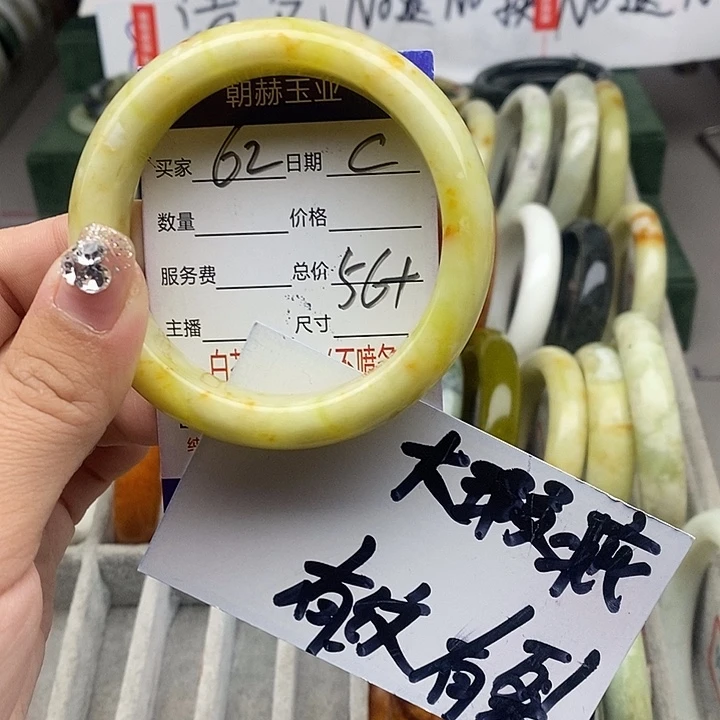 No退 No换 No退
朝赫玉业
买家 62 日期 C
数量 价格
服务费 总价 56+
主播 尺寸
不喷
大瑕疵
有纹有裂